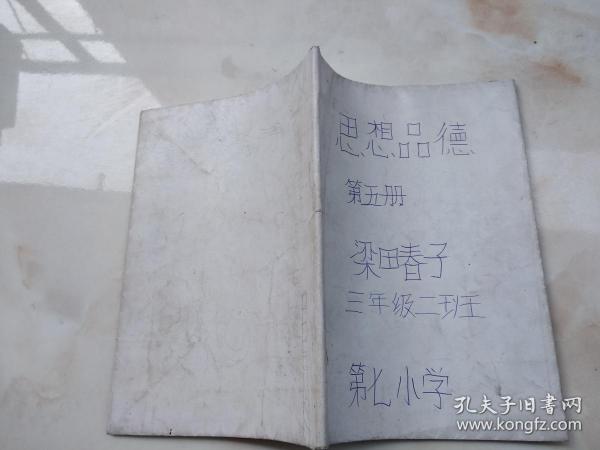 思想品德
第五册
梁田春子
三年级二班
第七小学
孔夫子旧书网
www.kongfz.com